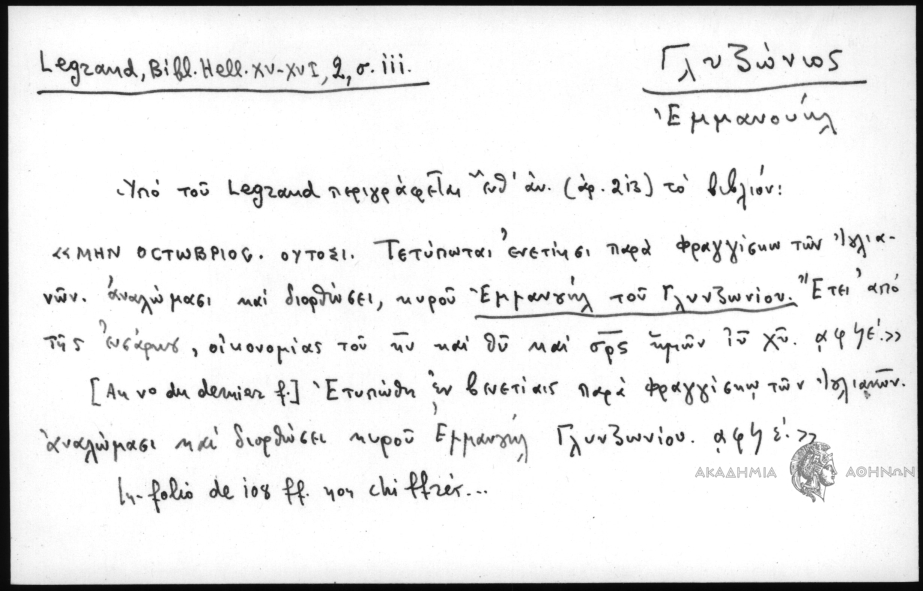 Legrand, Bibl. Hell. XV-XVI, 2, σ. iii.
Γλυζώνιος
Ἐμμανουήλ
Ὑπό τοῦ Legrand περιγράφεται ὑπ' ἀν. (ἀρ. 213) τό βιβλίον:
«ΜΗΝ ΟCΤΩΒΡΙΟC. ΟΥΤΟΣΙ. Τετύπωται ἐνετίησι παρά Φραγγίσκω τῶν Ἰουλια-
νῶν. ἀναλώμασι καί διορθώσει, κυροῦ Ἐμμανουήλ τοῦ Γλυνζωνίου. Ἔτει ἀπό
τῆς ἐνσάρκου, οἰκονομίας τοῦ κυ καί θυ καί σρς ἡμῶν ιυ χυ. αφϟε΄.»
[Au vo du dernier f.] Ἐτυπώθη ἐν βενετίαις παρά Φραγγίσκῳ τῶν Ἰουλιανῶν.
ἀναλώμασι καί διορθώσει κυροῦ Ἐμμανουήλ Γλυνζωνίου. αφϟε΄.»
In-folio de 108 ff. non chiffrés...
ΑΚΑΔΗΜΙΑ ΑΘΗΝΩΝ